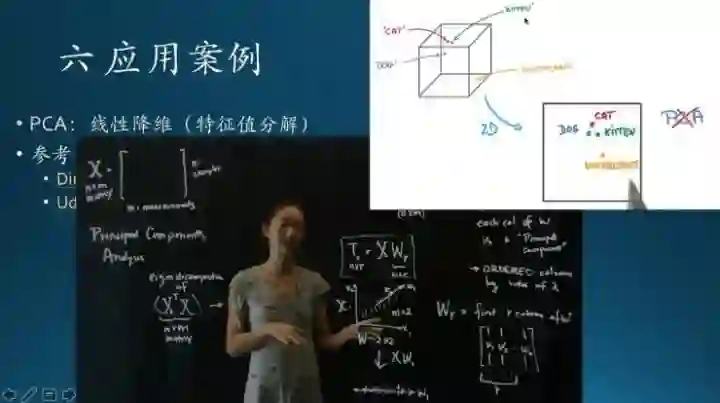 六 应用案例
• PCA：线性降维（特征值分解）
• 参考
• Di
• Ud
'CAT'
'KITTEN'
'DOG'
2D
CAT
DOG
KITTEN
PCA
X =
n×m
matrix
n
samples
m = measurements
Principal Components
Analysis
eigendecomposition
of
(XᵀX) →
m×m
matrix
Tᵣ = XWᵣ
n×r
each col of W
is a "Principal
component"
→ ORDERED columns
by value of λ
X =
x₂
x₁
m=2
W = 2×2
↓ XW₁
Wᵣ = first r columns of W
r